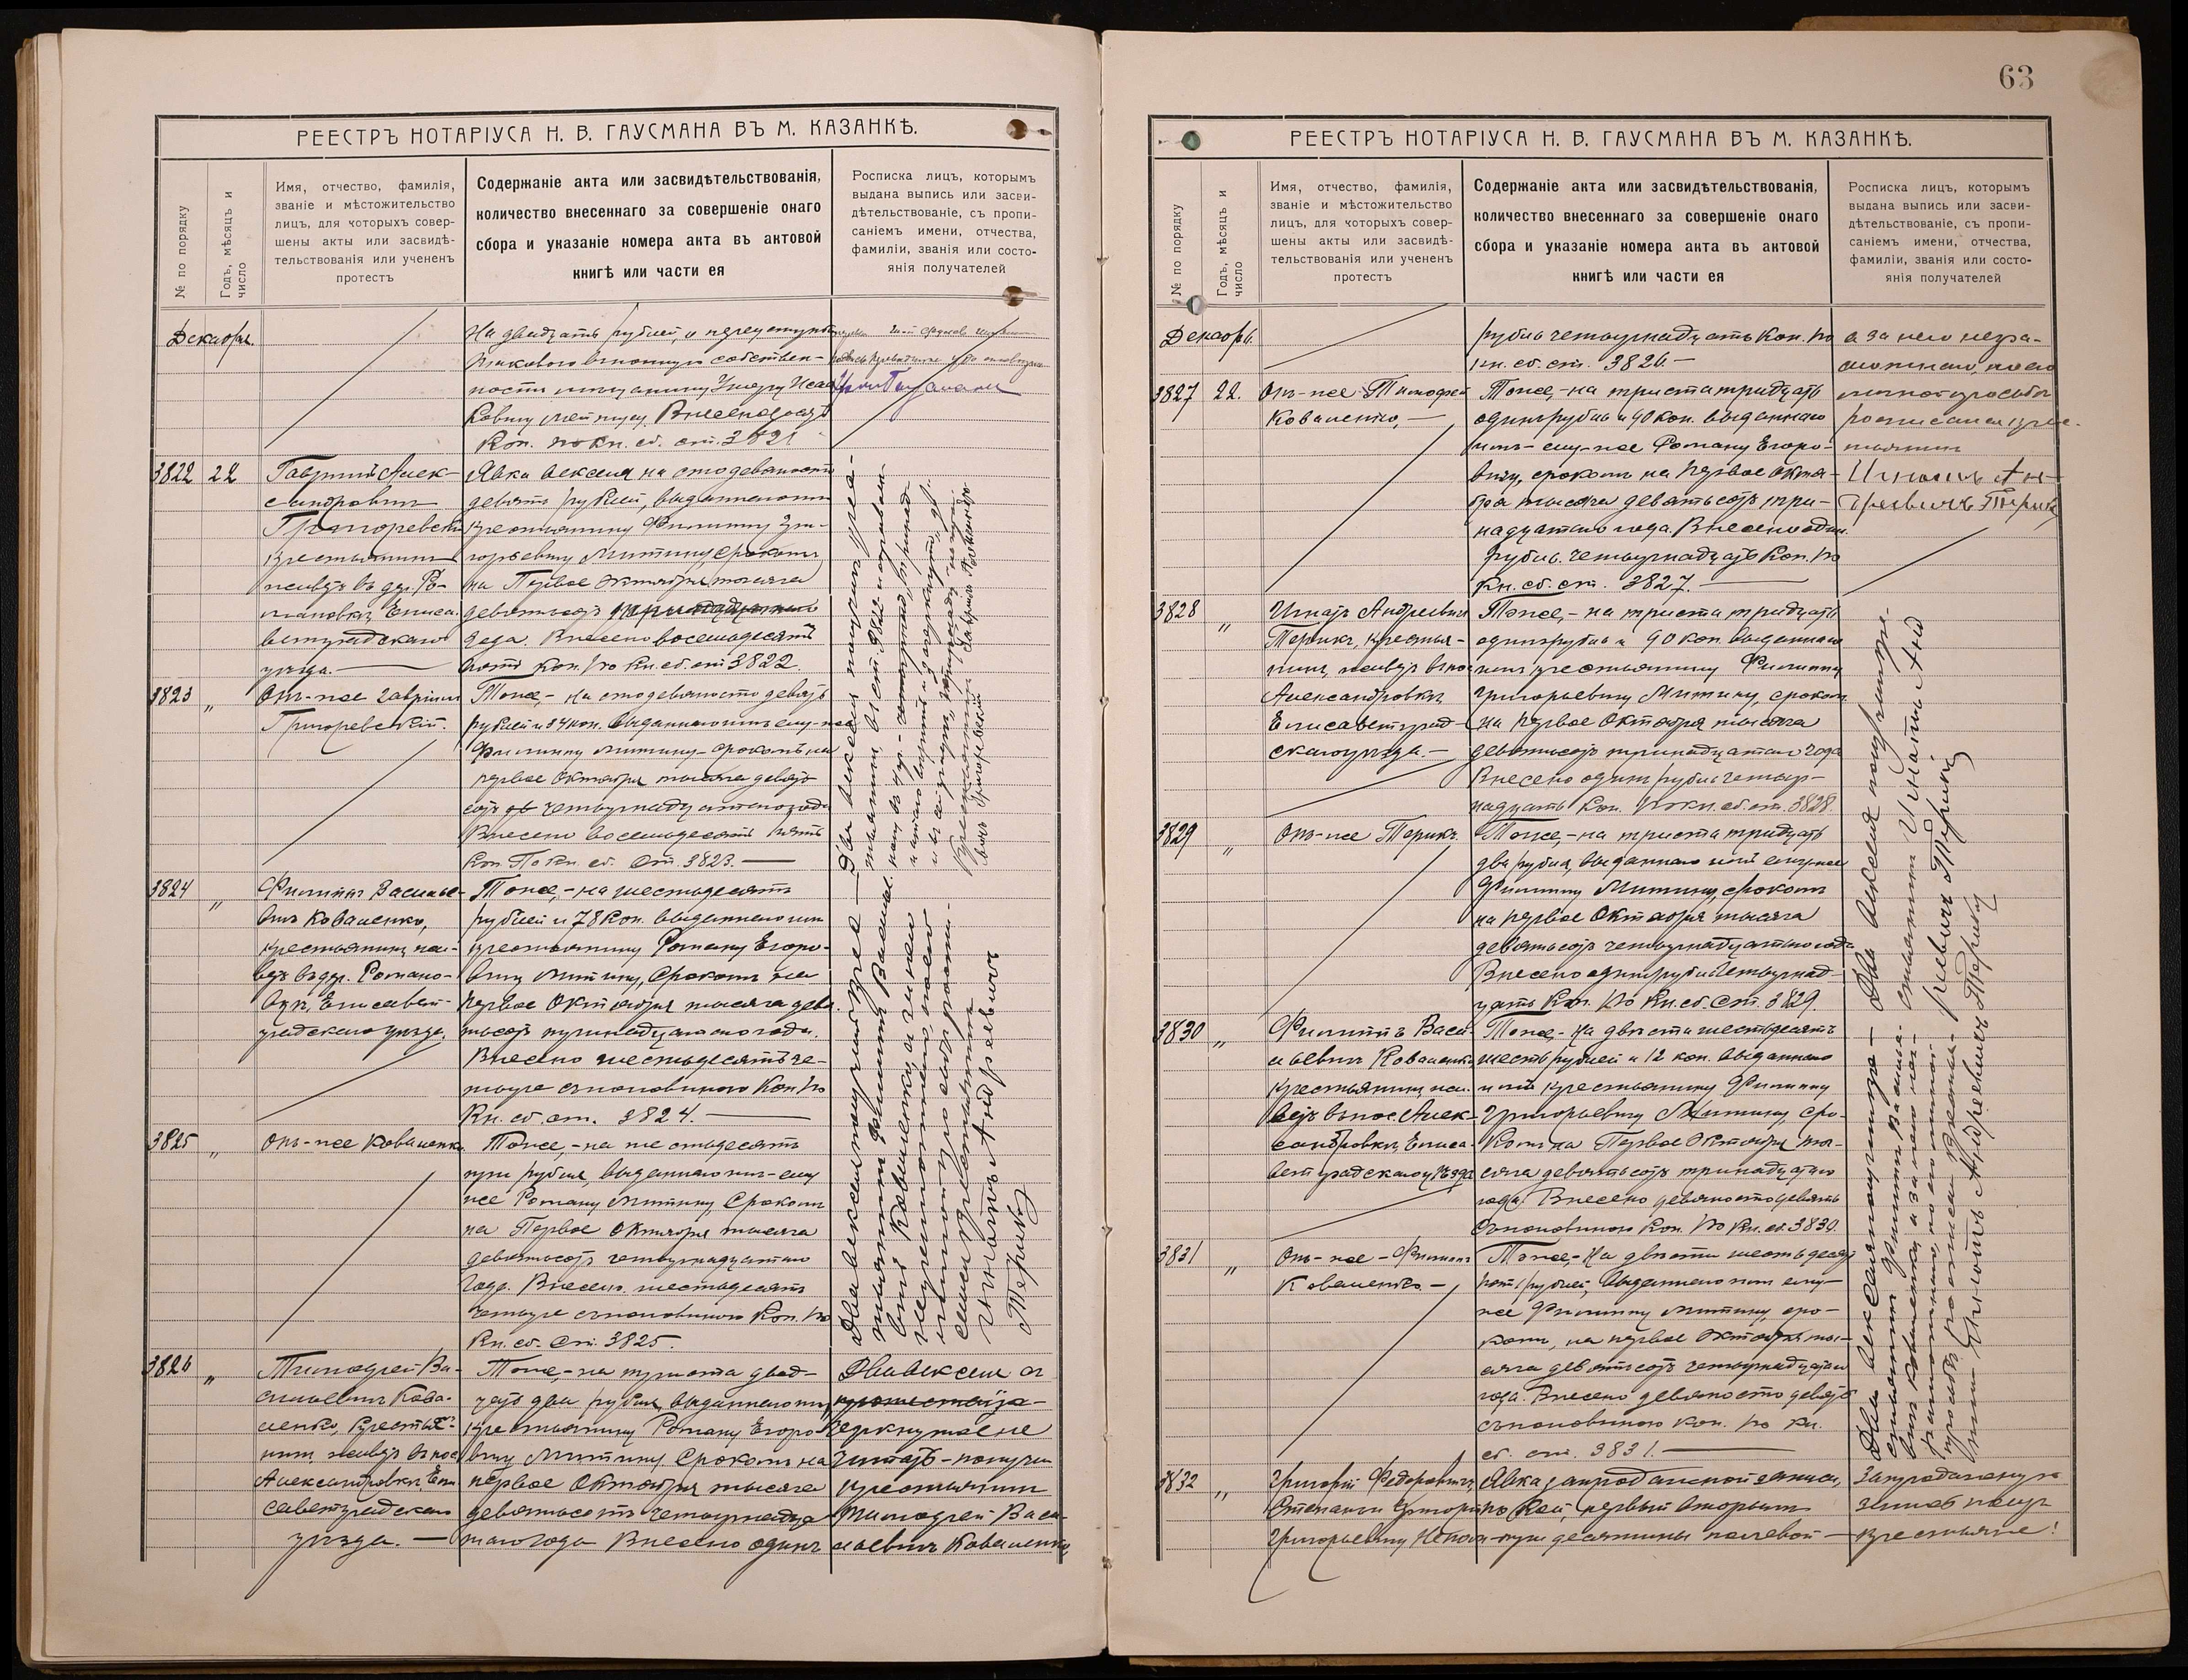 РЕЕСТРЪ НОТАРІУСА Н. В. ГАУСМАНА ВЪ М. КАЗАНКѢ.
№ по порядку
Годъ, мѣсяцъ и
число
Имя, отчество, фамилія,
званіе и мѣстожительство
лицъ, для которыхъ совер-
шены акты или засвидѣ-
тельствованія или учененъ
протестъ
Содержаніе акта или засвидѣтельствованія,
количество внесеннаго за совершеніе онаго
сбора и указаніе номера акта въ актовой
книгѣ или части ея
Росписка лицъ, которымъ
выдана выпись или засви-
дѣтельствованіе, съ пропи-
саніемъ имени, отчества,
фамиліи, званія или состо-
янія получателей
Декабря.
На двадцать рублей, о
собствен-
ности
Внесено
Коп. по кн. сб. ст. 3821
3822 22
Гавріилъ Алек-
сандровичъ
Григоревскій
крестьянинъ
живущ въ дер. Ро-
мановкѣ Елиса-
ветградскаго
уѣзда.
Явка векселя на сто девяносто
девять рублей, выданнаго имъ
крестьянину Филиппу Гри-
горьевичу Митину, срокомъ
на Первое Октября тысяча
девятьсотъ тринадцатаго
года. Внесено восемьдесятъ
пять коп. по кн. сб. ст 3822.
3823 „
Онъ-же Гавріилъ
Григоревскій.
Тоже,- на сто девяносто девять
рублей и 84 коп. выданнаго имъ ему-же
Филиппу Митину- срокомъ на
первое Октября тысяча девять
сотъ четырнадцатаго года
Внесено восемьдесятъ пять
Коп. По кн. сб. ст. 3823. —
3824 „
Филиппъ Василье-
вичъ Коваленко,
крестьянинъ жи-
вущ въ дер. Романо-
вкѣ, Елисавет-
градскаго уѣзда.
Тоже,- на шестьдесятъ
рублей и 78 коп. выданнаго имъ
крестьянину Роману Егоро-
вичу Митину, Срокомъ на
первое Октября тысяча девя-
тьсотъ тринадцатаго года.
Внесено шестьдесятъ че-
тыре съ половиною Коп. по
Кн. сб. ст. 3824. —
3825 „
Онъ-же Коваленко
Тоже,- на шестьдесятъ
три рубля, выданнаго имъ- ему
же Роману Митину, Срокомъ
на Первое Октября тысяча
девятьсотъ четырнадцатаго
года. Внесено шестьдесятъ
четыре съ половиною Коп. по
Кн. сб. ст. 3825.
3826 „
Тимофей Ва-
сильевичъ Кова-
ленко, крестья-
нинъ живущ въ пос
Александровкѣ, Ели-
саветградскаго
уѣзда. —
Тоже,- на триста двад-
цать два рубля, выданнаго имъ
крестьянину Роману Егоро-
вичу Митину Срокомъ на
первое Октября тысяча
девятьсотъ четырнадца-
таго года Внесено одинъ
Два векселя
черкнутое не
читать- получилъ
крестьянинъ
Тимофей Васи-
льевичъ Коваленко,
Два векселя получилъ кре-
стьянинъ
Два векселя получилъ кре-
стьянинъ Филиппъ Василье-
вичъ Коваленко, а за него
неграмотнаго, по его
личной просьбѣ росписал-
ся крестьянинъ
Игнатъ Андреевичъ
Терикъ
63
РЕЕСТРЪ НОТАРІУСА Н. В. ГАУСМАНА ВЪ М. КАЗАНКѢ.
№ по порядку
Годъ, мѣсяцъ и
число
Имя, отчество, фамилія,
званіе и мѣстожительство
лицъ, для которыхъ совер-
шены акты или засвидѣ-
тельствованія или учененъ
протестъ
Содержаніе акта или засвидѣтельствованія,
количество внесеннаго за совершеніе онаго
сбора и указаніе номера акта въ актовой
книгѣ или части ея
Росписка лицъ, которымъ
выдана выпись или засви-
дѣтельствованіе, съ пропи-
саніемъ имени, отчества,
фамиліи, званія или состо-
янія получателей
Декабрь.
рубль четырнадцать Коп. по
кн. сб. ст. 3826. —
а за него негра-
мотнаго, по его
личной просьбѣ
росписался кре-
стьянинъ
Игнатъ Ан-
дреевичъ Терикъ
3827 22.
Онъ-же Тимофей
Коваленко, —
Тоже,- на триста тридцать
одинъ рубль и 90 коп. выданнаго
имъ- ему-же Роману Егоро-
вичу, срокомъ на Первое Октя-
бря тысяча девятьсотъ три-
надцатаго года. Внесено один
рубль четырнадцать Коп. по
Кн. сб. ст. 3827. —
3828 „
Игнатъ Андреевичъ
Терикъ, крестья-
нинъ, живущ въ пос
Александровкѣ
Елисаветград-
скаго уѣзда. —
Тоже,- на триста тридцать
одинъ рубль и 90 коп. выданнаго
имъ крестьянину Филиппу
Григорьевичу Митину, срокомъ
на первое Октября тысяча
девятьсотъ тринадцатаго года
Внесено одинъ рубль четыр-
надцать Коп. По кн. сб. ст. 3828.
3829 „
Онъ-же Терикъ.
Тоже,- на триста тридцать
два рубля, выданнаго имъ ему-же
Филиппу Митину, срокомъ
на первое Октября тысяча
девятьсотъ четырнадцатаго года
Внесено одинъ рубль четырнад-
цать Коп. по Кн. сб. ст. 3829.
3830 „
Филиппъ Васи-
льевичъ Коваленко
крестьянинъ жи-
вущ въ пос. Алек-
сандровкѣ, Елиса-
ветградскаго уѣзда
Тоже,- на двѣсти шестьдесятъ
шесть рублей и 12 коп. выданнаго
имъ крестьянину Филиппу
Григорьевичу Митину, сро-
комъ на Первое Октября ты-
сяча девятьсотъ тринадцатаго
года. Внесено девяносто девять
съ половиною Коп. по Кн. сб. 3830.
3831 „
Онъ-же- Филиппъ
Коваленко —
Тоже,- на двѣсти шестьдесят
рублей, выданнаго имъ ему-
же Филиппу Митину, сро-
комъ, на первое Октября ты-
сяча девятьсотъ четырнадцатаго
года. Внесено девяносто девять
съ половиною коп. по кн.
сб. ст. 3831. —
Два векселя получилъ кре-
стьянинъ Игнатъ Анд
реевичъ Терикъ
Два векселя получилъ кре-
стьянинъ Филиппъ Василье-
вичъ Коваленко, а за него не-
грамотнаго, по его личной
просьбѣ росписался крестья-
нинъ Игнатъ Андреевичъ Терикъ
3832 „
Григорій Федоровичъ,
Степанъ Григорь
Григорьевичу
Явка запродажной записи,
по коей, первый вторымъ
три десятины полевой —
Запродажную
запись
крестьяне: